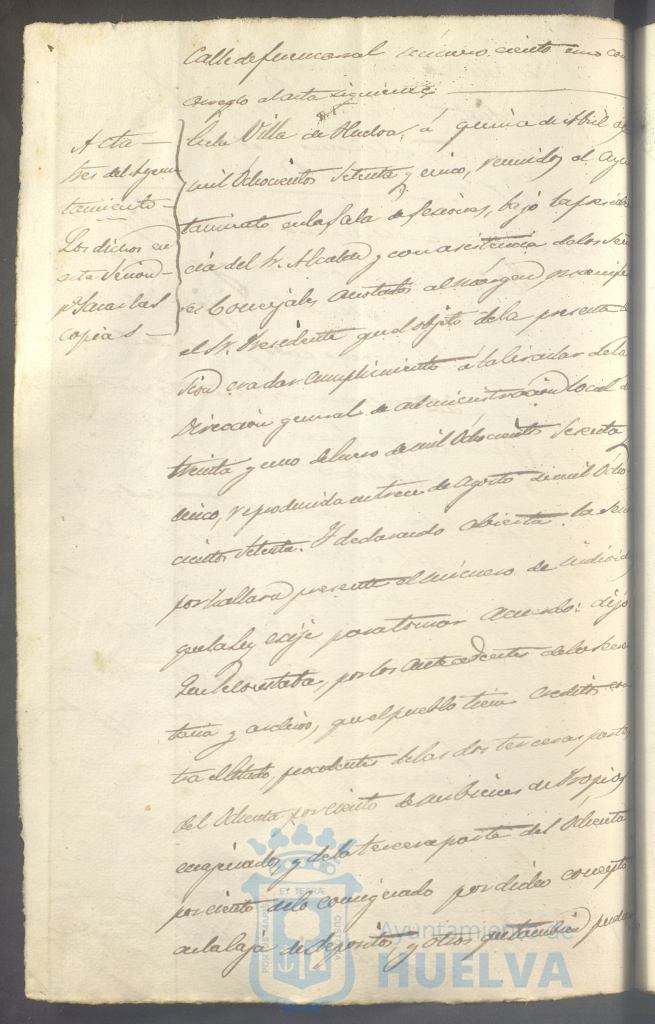 Calle de fernconal número ciento uno con
arreglo al acta siguiente
Acta
del Ayun
tamiento
Los dichos en
esta Sesion
pª sacar las
copias
En la Villa de Huelva, á quince de Abril de
mil ochocientos setenta y cinco, reunidos el Ayun
tamiento en la Sala de Sesiones, bajo la presiden
cia del Sr. Alcalde y con asistencia de los Seño
res Concejales anotados al márgen manifestó
el Sr. Presidente que el objeto de la presente se
sion era dar cumplimiento á la Circular de la
Direccion general de administracion local de
treinta y uno de Enero de mil ochocientos sesenta y
cinco, reproducida en trece de Agosto de mil ocho
cientos setenta. Y declarando abierta la Sesion
por hallarse presente el número de individuos
que la Ley exije para tomar acuerdo: dijo
Que le constaba, por los antecedentes de la Secre
taria y archivo, que el pueblo tiene creditos con
tra el Estado, procedentes de las dos terceras partes
del ochenta por ciento de sus bienes de Propios
enagenados y de la tercera parte del ochenta
por ciento de lo consignado por dicho concepto
en la caja de depositos, y otros que tambien
POR ET TERRAE CUSTODIA
Ayuntamiento de
HUELVA